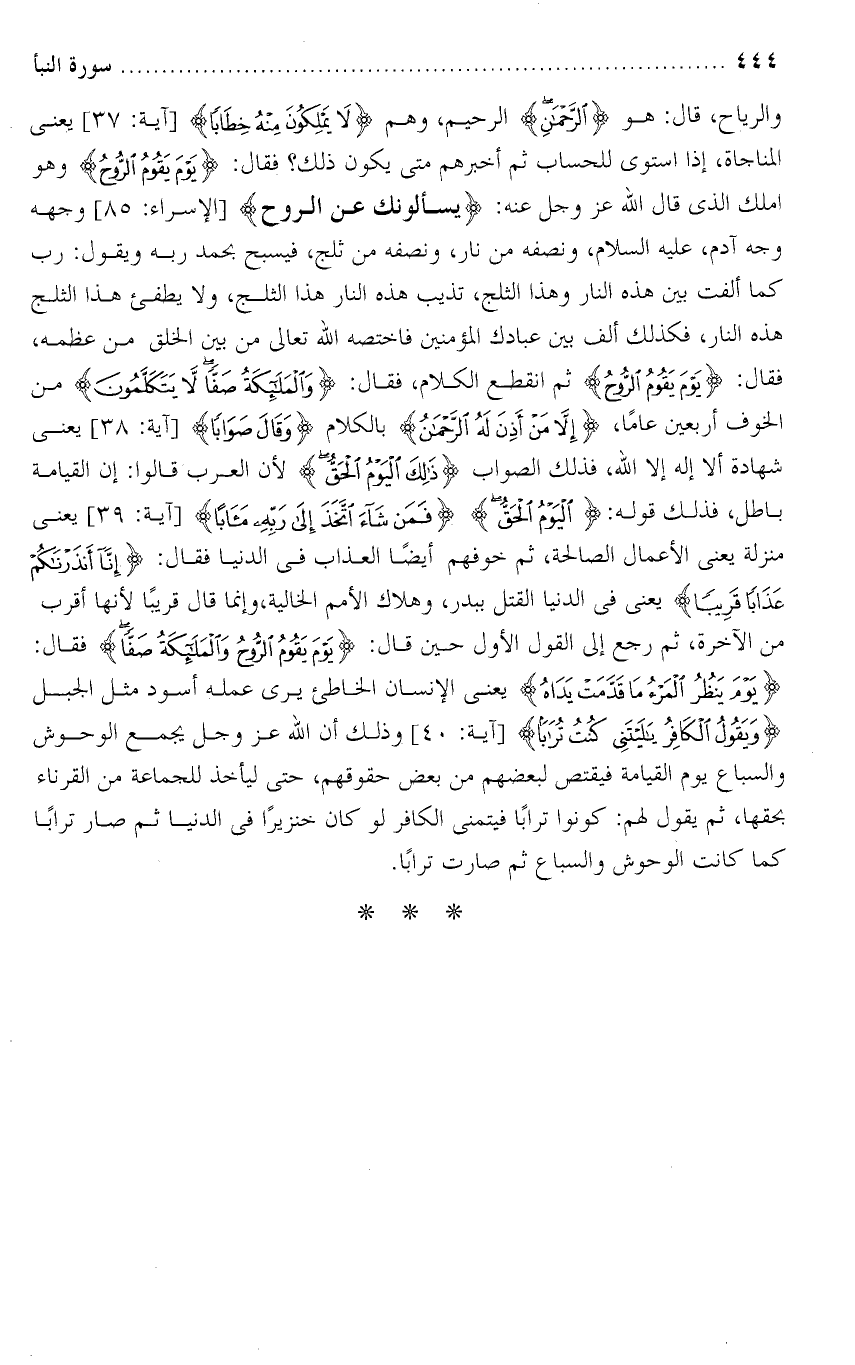 ٤٤٤ ........................................................................ سورة النبأ
والرياح، قال: هو ﴿ٱلرَّحْمَٰنِۖ﴾ الرحيم، وهم ﴿لَا يَمْلِكُونَ مِنْهُ خِطَابًا﴾ [آية: ٣٧] يعنى
المناجاة، إذا استوى للحساب ثم أخبرهم متى يكون ذلك؟ فقال: ﴿يَوْمَ يَقُومُ ٱلرُّوحُ﴾ وهو
املك الذى قال الله عز وجل عنه: ﴿يسألونك عن الروح﴾ [الإسراء: ٨٥] وجهه
وجه آدم، عليه السلام، ونصفه من نار، ونصفه من ثلج، فيسبح بحمد ربه ويقول: رب
كما ألفت بين هذه النار وهذا الثلج، تذيب هذه النار هذا الثلج، ولا يطفئ هذا الثلج
هذه النار، فكذلك ألف بين عبادك المؤمنين فاختصه الله تعالى من بين الخلق من عظمه،
فقال: ﴿يَوْمَ يَقُومُ ٱلرُّوحُ﴾ ثم انقطع الكلام، فقال: ﴿وَٱلْمَلَٰٓئِكَةُ صَفًّاۖ لَّا يَتَكَلَّمُونَ﴾ من
الخوف أربعين عامًا، ﴿إِلَّا مَنْ أَذِنَ لَهُ ٱلرَّحْمَٰنُ﴾ بالكلام ﴿وَقَالَ صَوَابًا﴾ [آية: ٣٨] يعنى
شهادة ألا إله إلا الله، فذلك الصواب ﴿ذَٰلِكَ ٱلْيَوْمُ ٱلْحَقُّۖ﴾ لأن العرب قالوا: إن القيامة
باطل، فذلك قوله: ﴿ٱلْيَوْمُ ٱلْحَقُّۖ﴾ ﴿فَمَن شَآءَ ٱتَّخَذَ إِلَىٰ رَبِّهِۦ مَـَٔابًا﴾ [آية: ٣٩] يعنى
منزلة يعنى الأعمال الصالحة، ثم خوفهم أيضًا العذاب فى الدنيا فقال: ﴿إِنَّآ أَنذَرْنَٰكُمْ
عَذَابًا قَرِيبًا﴾ يعنى فى الدنيا القتل ببدر، وهلاك الأمم الخالية،وإنما قال قريبًا لأنها أقرب
من الآخرة، ثم رجع إلى القول الأول حين قال: ﴿يَوْمَ يَقُومُ ٱلرُّوحُ وَٱلْمَلَٰٓئِكَةُ صَفًّاۖ﴾ فقال:
﴿يَوْمَ يَنظُرُ ٱلْمَرْءُ مَا قَدَّمَتْ يَدَاهُ﴾ يعنى الإنسان الخاطئ يرى عمله أسود مثل الجبل
﴿وَيَقُولُ ٱلْكَافِرُ يَٰلَيْتَنِى كُنتُ تُرَٰبًا﴾ [آية: ٤٠] وذلك أن الله عز وجل يجمع الوحوش
والسباع يوم القيامة فيقتص لبعضهم من بعض حقوقهم، حتى ليأخذ للجماعة من القرناء
بحقها، ثم يقول لهم: كونوا ترابًا فيتمنى الكافر لو كان خنزيرًا فى الدنيا ثم صار ترابًا
كما كانت الوحوش والسباع ثم صارت ترابًا.
* * *